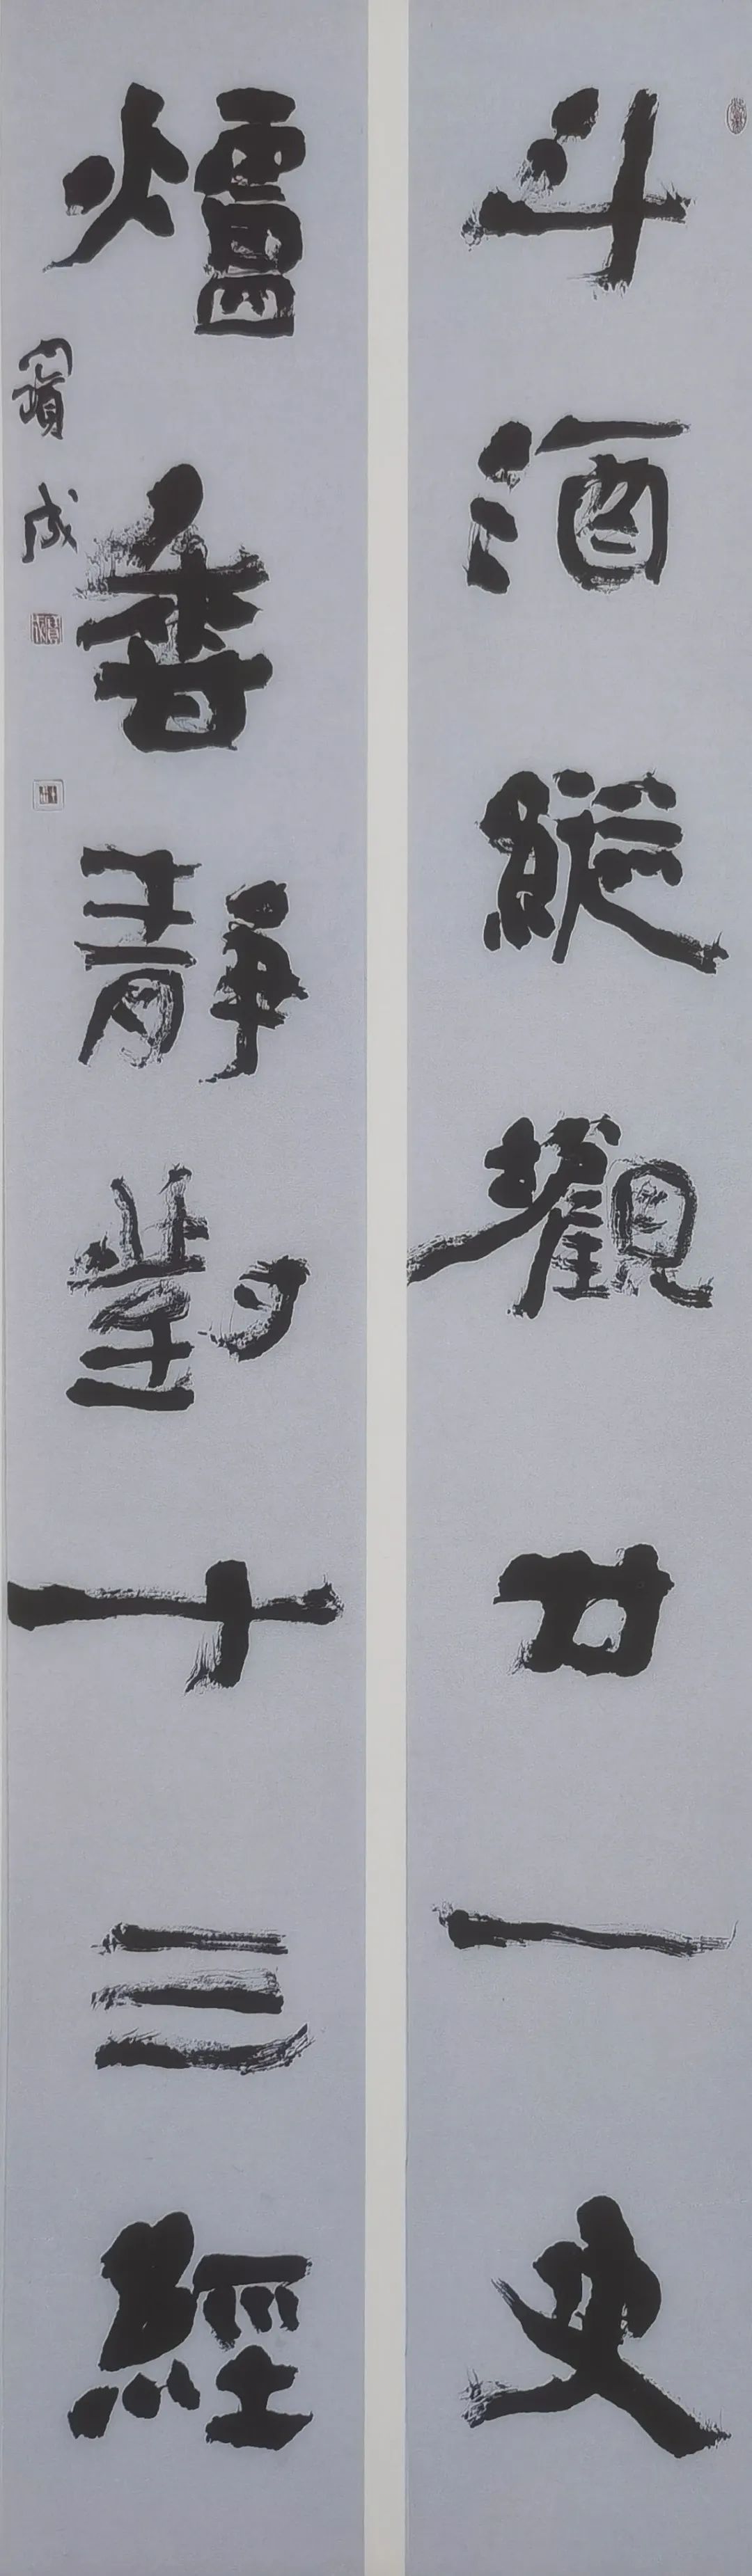 斗酒縱觀廿一史
爐香靜對十三經
寶成